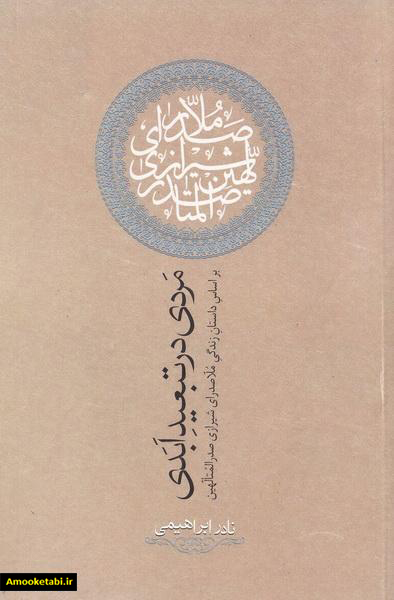 ملاصدرای
شیرازی
صدرالمتالهین
مَردی در تبعیدِ اَبَدی
بر اساسِ داستانِ زندگیِ مُلّاصدرای شیرازی صدرالمُتالّهین
نادر ابراهیمی
Amooketabi.ir